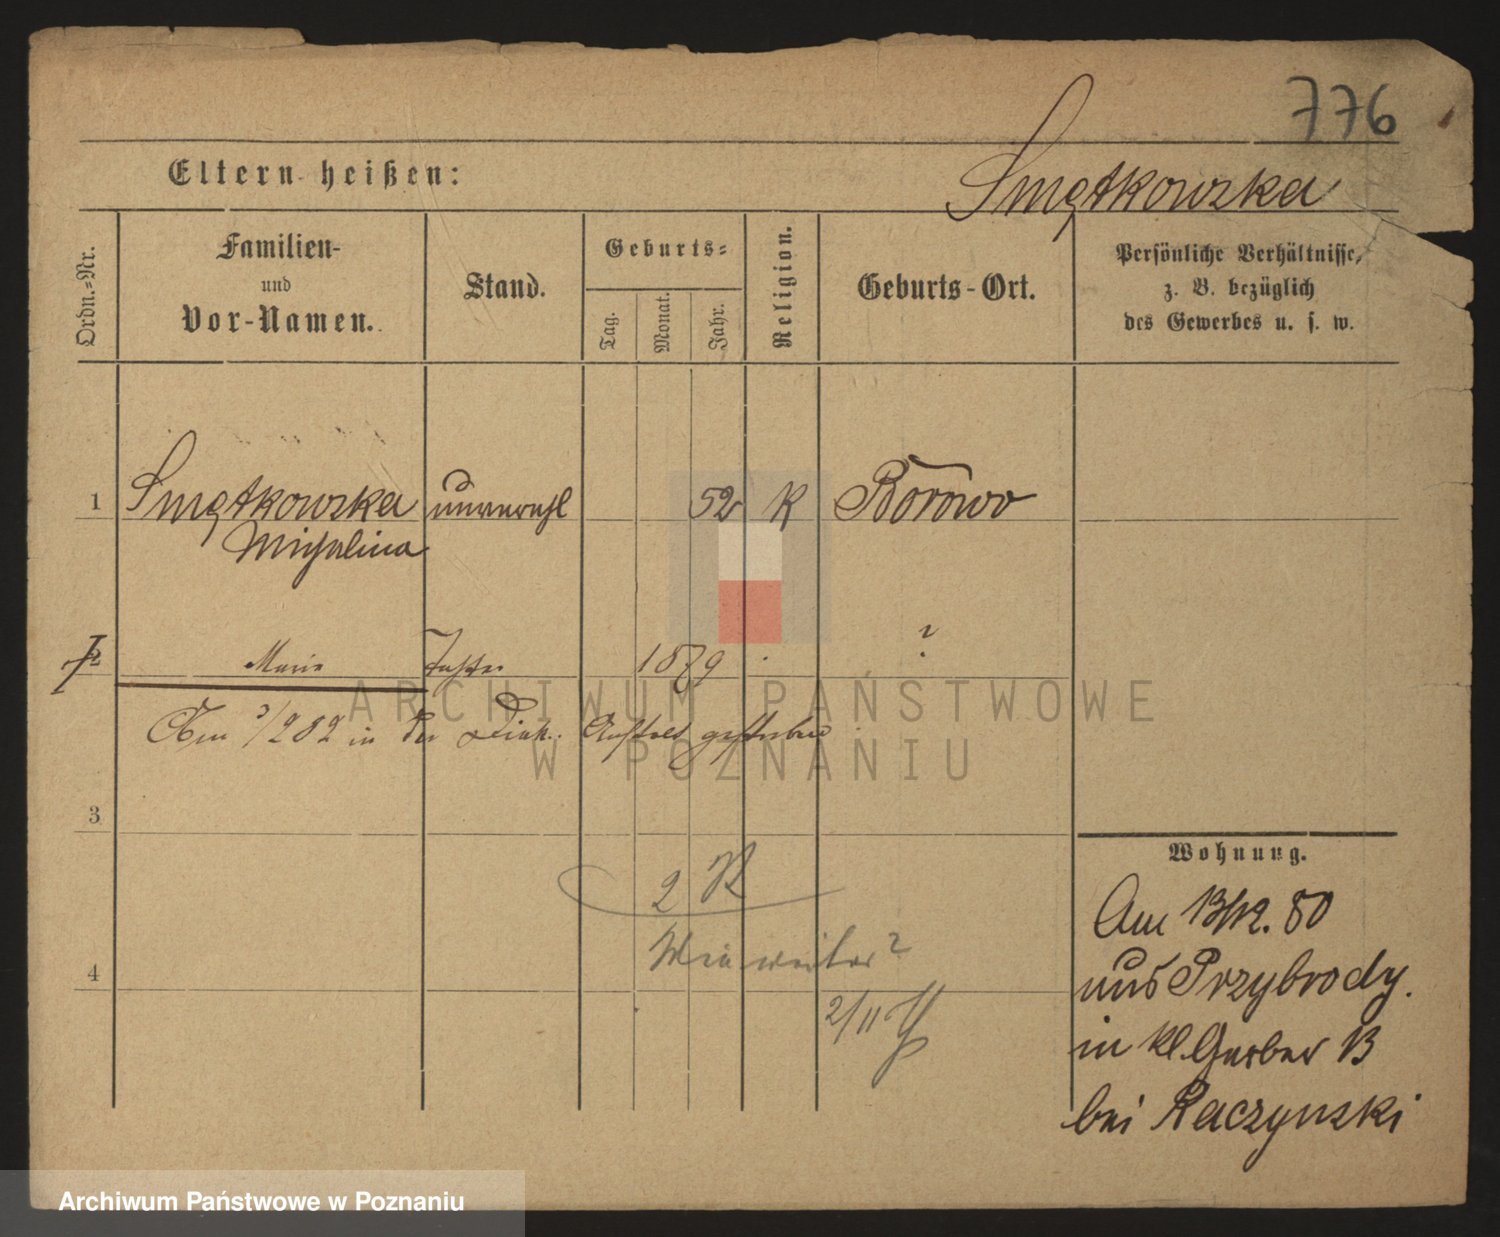 776
Eltern heißen:
Smętkowska
Ordn.-Nr.
Familien-
und
Vor-Namen.
Stand.
Geburts-
Tag.
Monat.
Jahr.
Religion.
Geburts-Ort.
Persönliche Verhältnisse,
z. B. bezüglich
des Gewerbes u. s. w.
1 Smętkowska unverehl 52 K Borówo
Michalina
2 Marie Tochter 1879 ?
Am 3/2 82 in der Diak. Anstalt gestorben
3
Wohnung.
2 R
Am 13/12. 80
Wie weiter?
4
aus Przybrody.
2/11
in kl. Gerber 13
bei Raczynski
ARCHIWUM PAŃSTWOWE
W POZNANIU
Archiwum Państwowe w Poznaniu